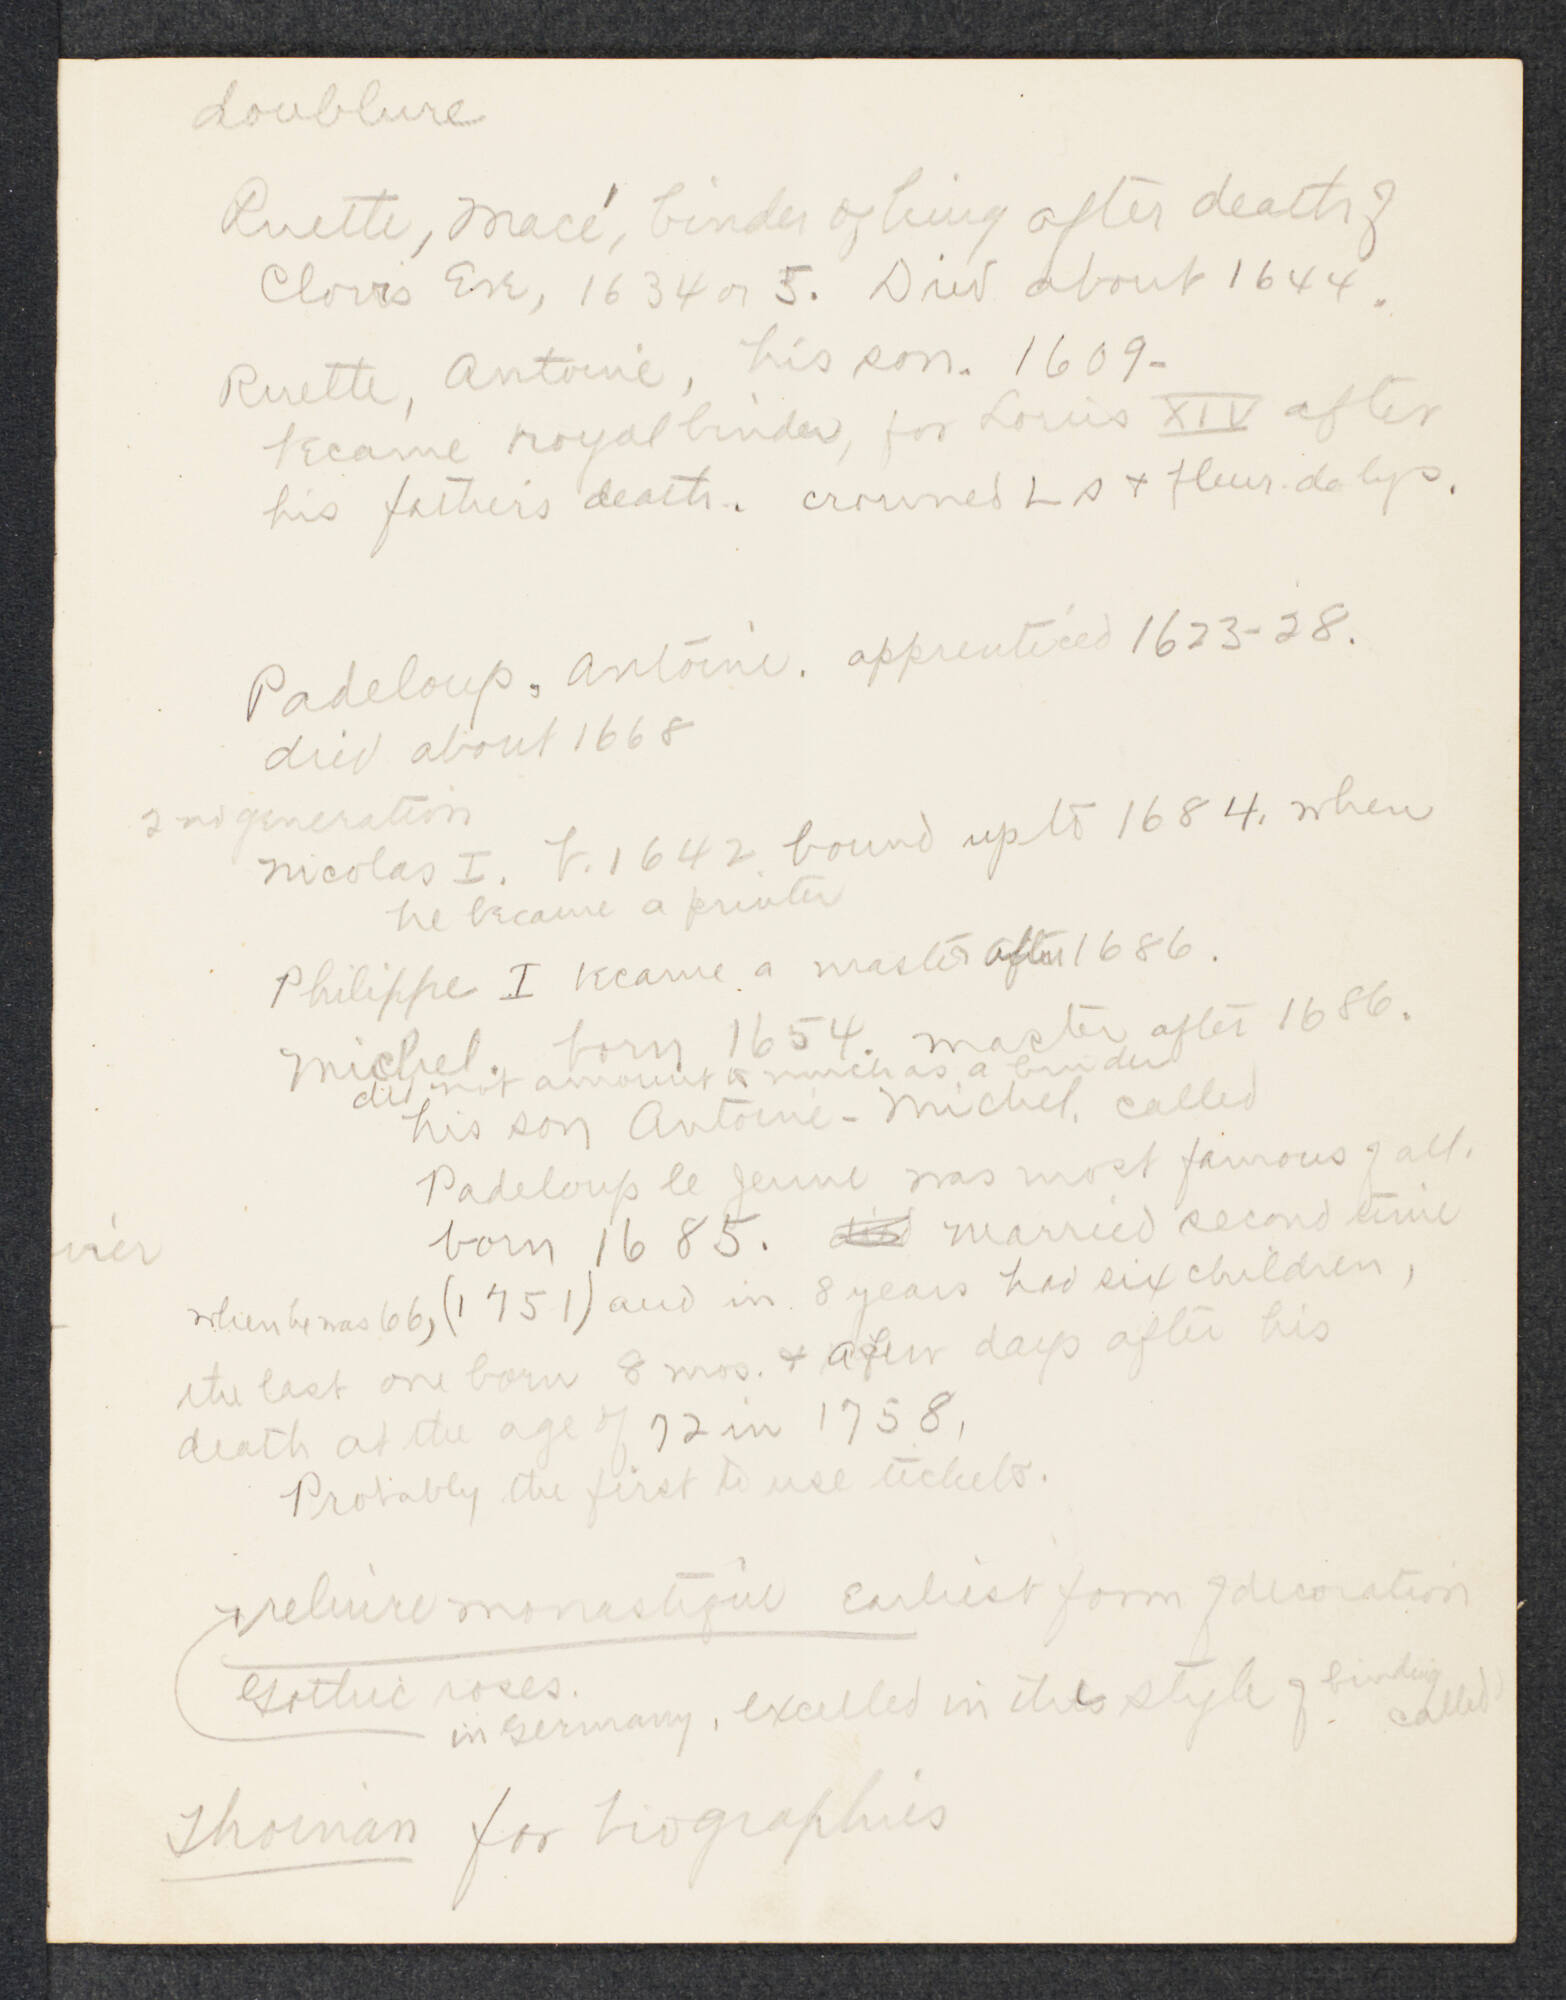 doublure
Ruette, Macé, binder of king after death of
Clovis Eve, 1634 or 5. Died about 1644.
Ruette, Antoine, his son. 1609-
became royal binder, for Louis XIV after
his father's death. crowned L s + fleur-de lys.
Padeloup, Antoine. apprenticed 1623-28.
died about 1668
2nd generation
Nicolas I. b. 1642 bound up to 1684. when
he became a printer
Philippe I became a master after 1686.
Michel. born 1654. master after 1686.
did not amount to much as a binder
his son Antoine-Michel, called
Padeloup le Jeune was most famous of all.
born 1685. died married second time
when he was 66, (1751) and in 8 years had six children,
the last one born 8 mos. + a few days after his
death at the age of 72 in 1758,
Probably the first to use tickets.
reliure monastique Earliest form of decoration
Gothic roses.
in Germany, excelled in this style of binding
called
Thoinan for biographies